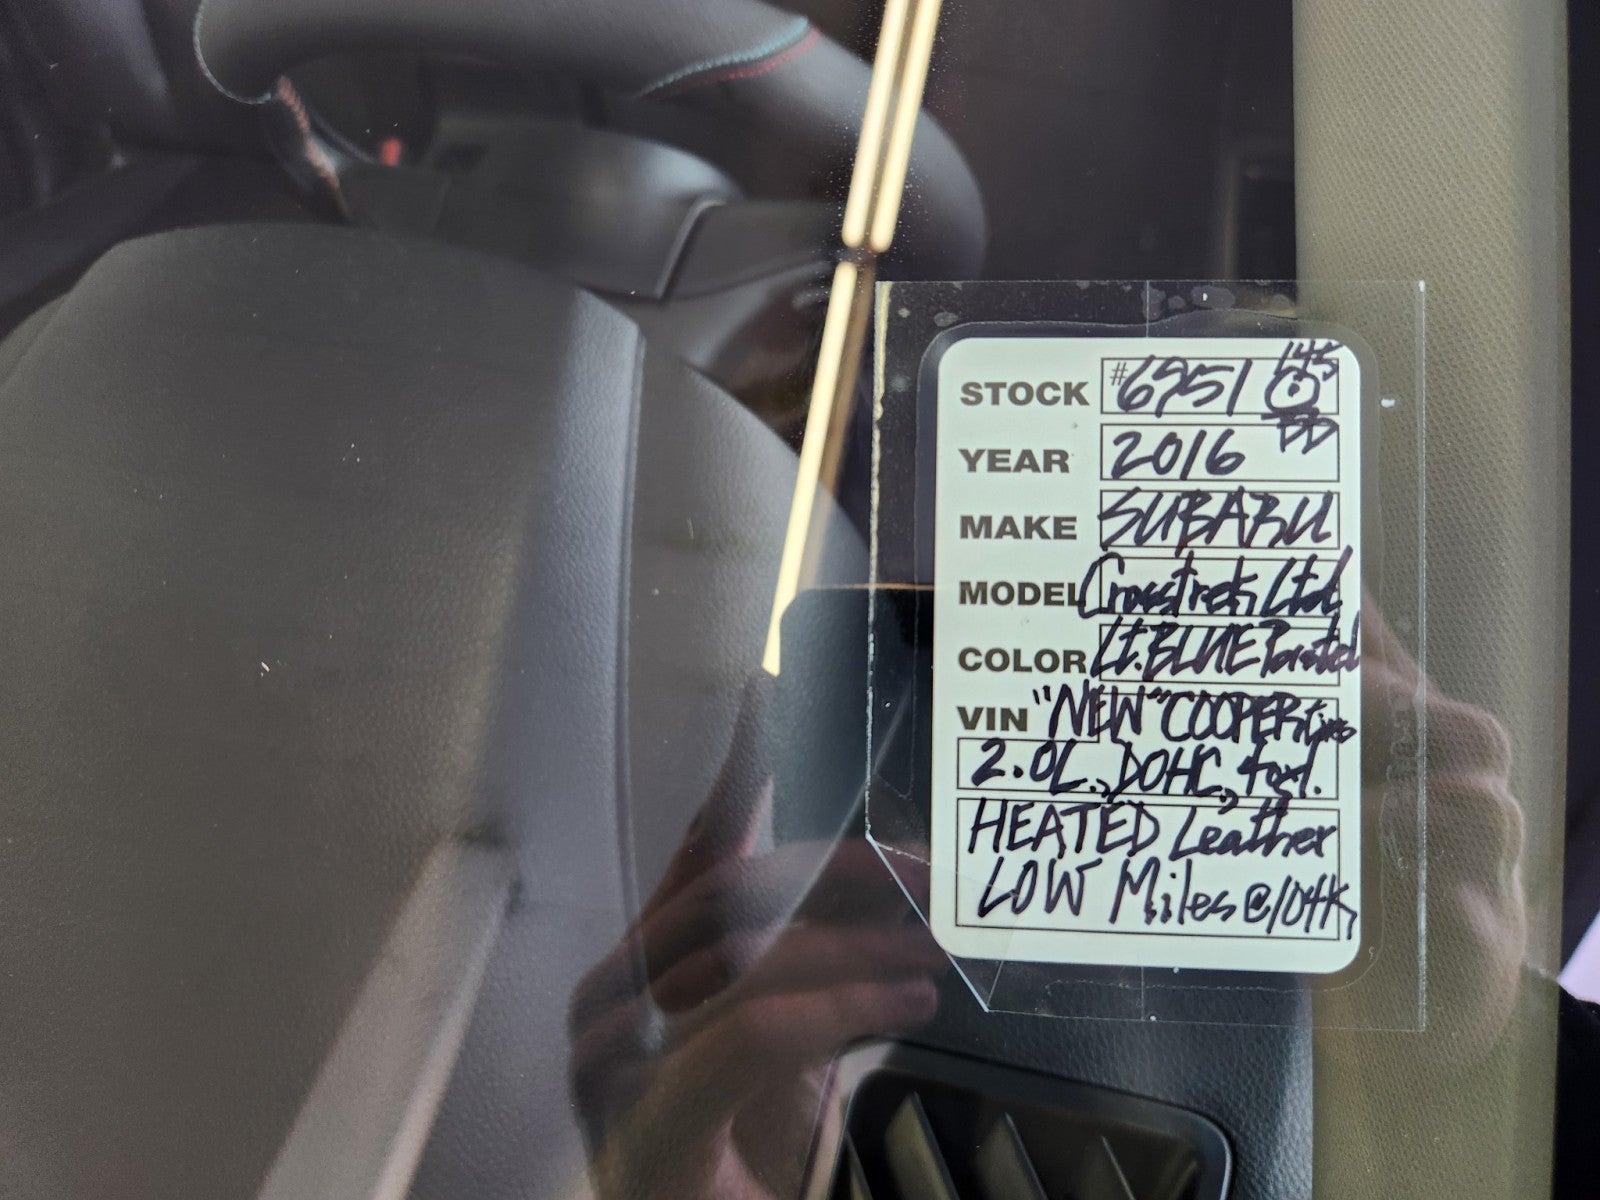 STOCK #6951 L45
YEAR 2016
MAKE SUBARU
MODEL Crosstrek Ltd.
COLOR Lt. BLUE
VIN "NEW" COOPER tires
2.0L., DOHC.,
HEATED Leather
LOW Miles @ 104K